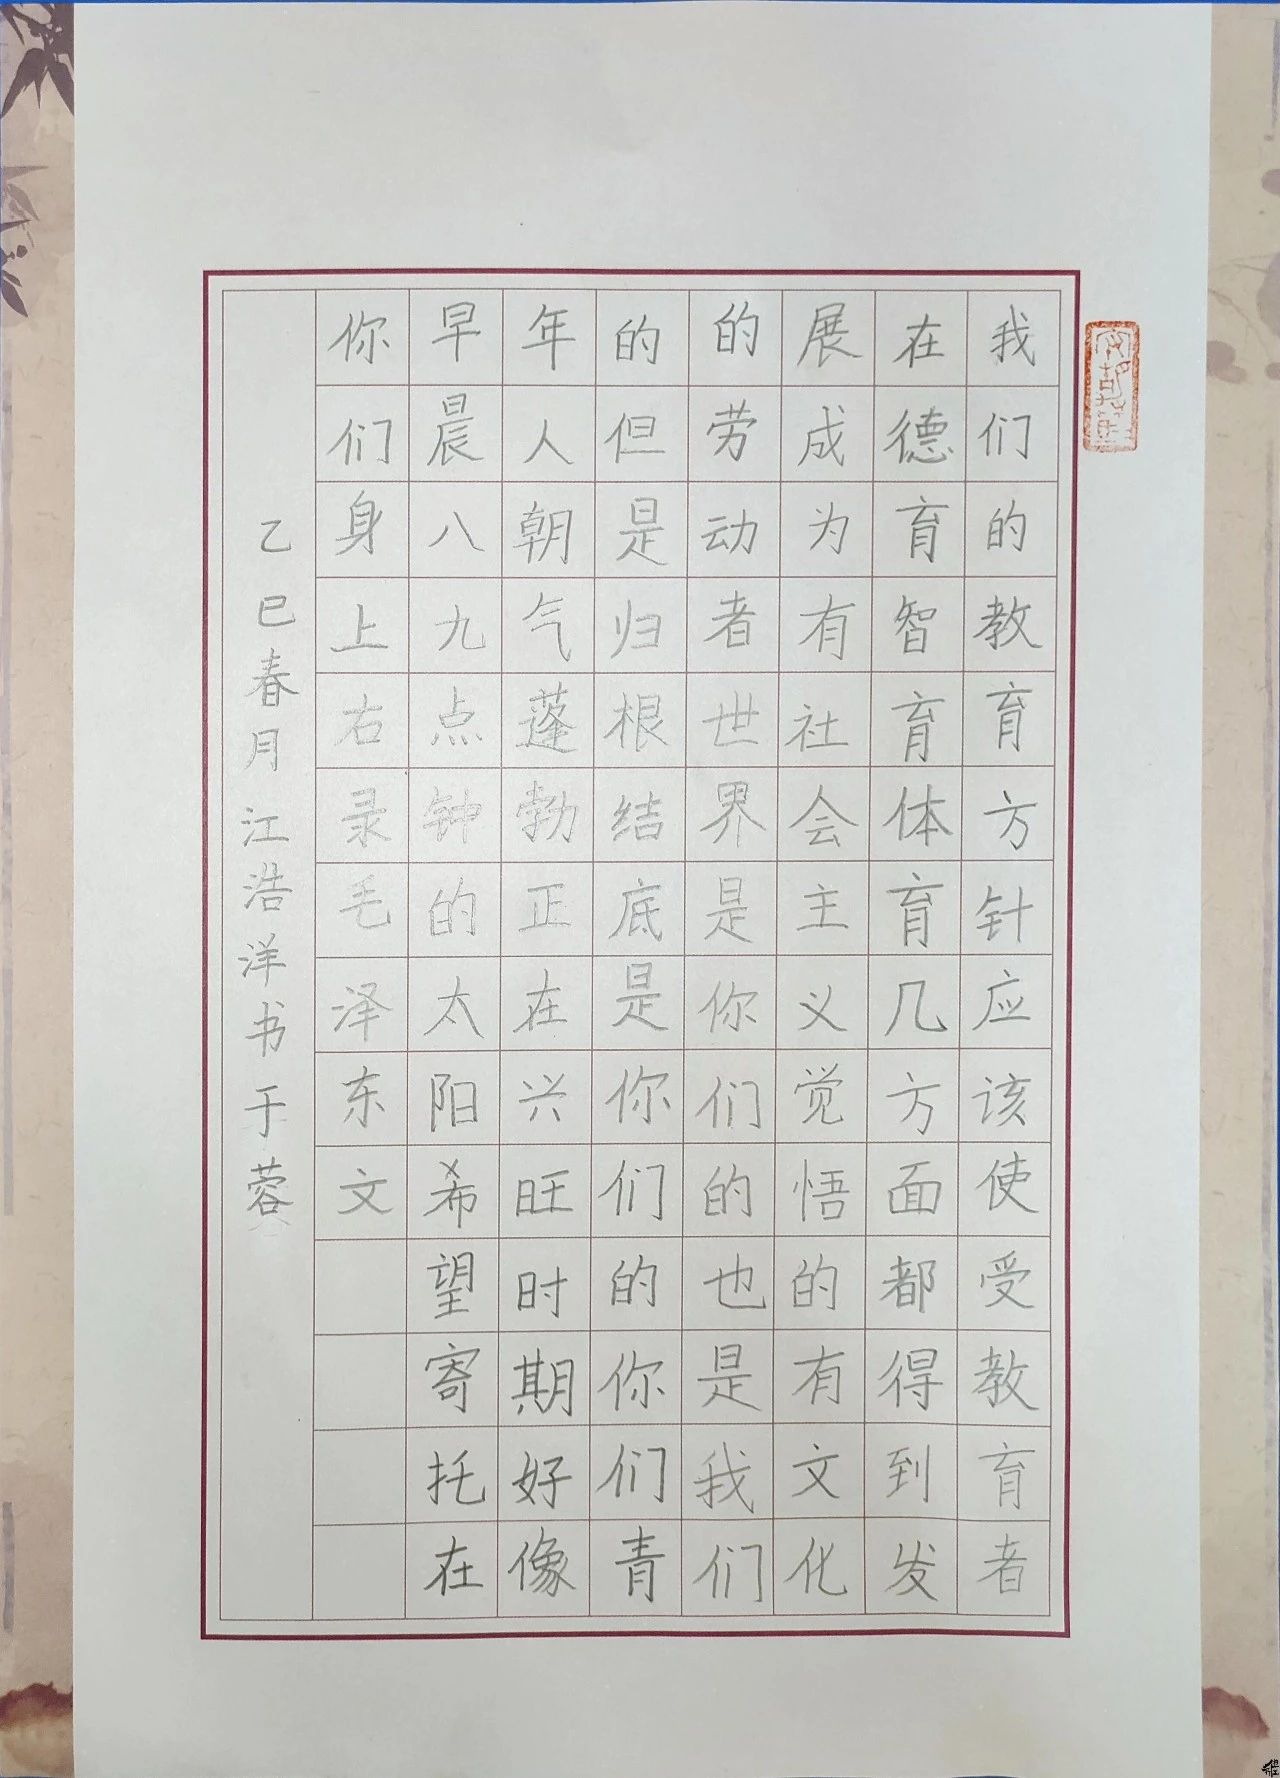 我们的教育方针应该使受教育者
在德育智育体育几方面都得到发
展成为有社会主义觉悟的有文化
的劳动者世界是你们的也是我们
的但是归根结底是你们的你们青
年人朝气蓬勃正在兴旺时期好像
早晨八九点钟的太阳希望寄托在
你们身上右录毛泽东文
乙巳春月江浩洋书于蓉